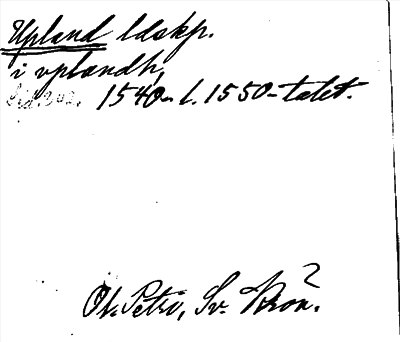 Upland ldskp.
i vplandh,
Sid. 202. 1540- l. 1550-talet.
Ol. Petri, Sv. Krön.